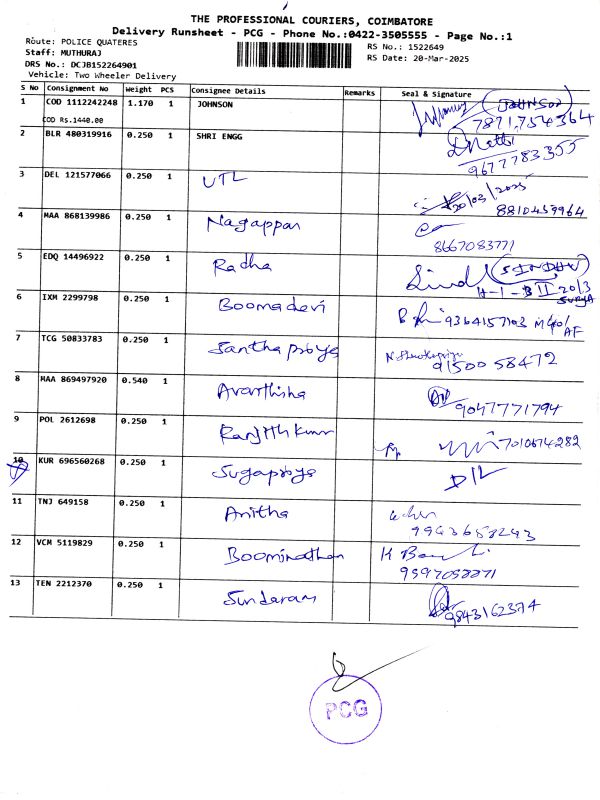 THE PROFESSIONAL COURIERS, COIMBATORE
Delivery Runsheet - PCG - Phone No.:0422-3505555 - Page No.:1
Route: POLICE QUATERES
Staff: MUTHURAJ
DRS No.: DCJB152264901
Vehicle: Two Wheeler Delivery
RS No.: 1522649
RS Date: 20-Mar-2025
S No Consignment No Weight PCS Consignee Details Remarks Seal & Signature
1 COD 1112242248 1.170 1 JOHNSON (JOHNSON)
COD Rs.1440.00 7871754364
2 BLR 480319916 0.250 1 SHRI ENGG
9677783355
3 DEL 121577066 0.250 1 UTL 20/03/2025
8810459964
4 MAA 868139986 0.250 1 Nagappan
8667083771
5 EDQ 14496922 0.250 1 Radha (SINDHU)
6 IXM 2299798 0.250 1 Boomadevi 9364157103
7 TCG 50833783 0.250 1 Santhapriya 9150058472
8 MAA 869497920 0.540 1
9047771794
9 POL 2612698 0.250 1 Ranjithkumar 7010674282
10 KUR 696560268 0.250 1 Sugapriya D/L
11 TNJ 649158 0.250 1 Anitha
9943658243
12 VCM 5119829 0.250 1 Boominathan
13 TEN 2212370 0.250 1 Sundaram 9843162374
PCG